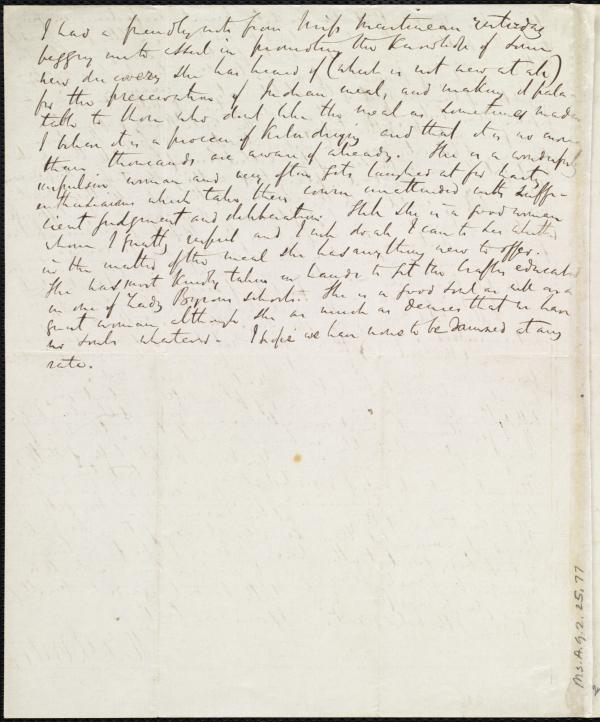 I had a friendly note from Miss Martineau yesterday
begging me to assist in promoting the knowledge of some
new discovery she has heard of (which is not new at all)
for the preservation of Indian meal, and making it pala-
table to those who dont like the meal as sometimes made.
I believe it is a process of kiln drying and that it is no more
than thousands are aware of already. She is a wonderful
impulsive woman and very often gets laughed at for hasty
enthusiasms which take their course unattended with suffi-
cient judgment and deliberation. Still she is a good woman
whom I greatly respect and I will do all I can to see whether
in the matter of the meal she has anything new to offer.
She has most kindly taken in hand to get the Crafts educated
in one of Lady Byrons schools. She is a good soul as well as a
great woman, although she as much as denies that we have
no souls whatever. I hope we have none to be damned at any
rate.
Ms. A. 9. 2. 25, 77